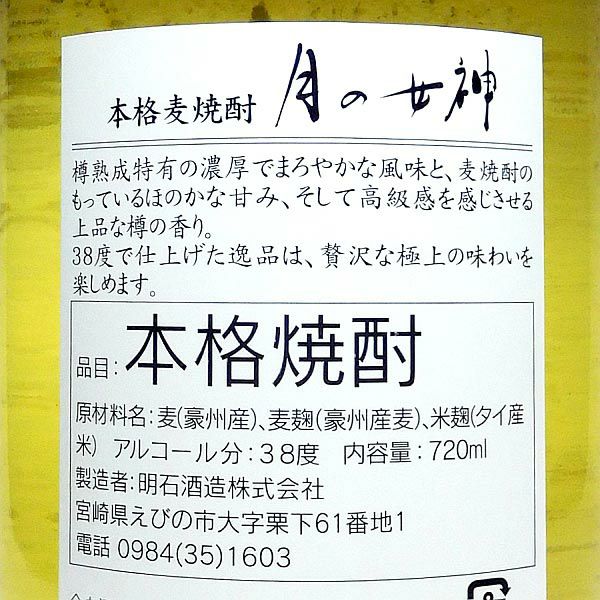 本格麦焼酎 月の女神
樽熟成特有の濃厚でまろやかな風味と、麦焼酎の
もっているほのかな甘み、そして高級感を感じさせる
上品な樽の香り。
38度で仕上げた逸品は、贅沢な極上の味わいを
楽しめます。
品目:本格焼酎
原材料名:麦(豪州産)、麦麹(豪州産麦)、米麹(タイ産
米) アルコール分:38度 内容量:720ml
製造者:明石酒造株式会社
宮崎県えびの市大字栗下61番地1
電話 0984(35)1603